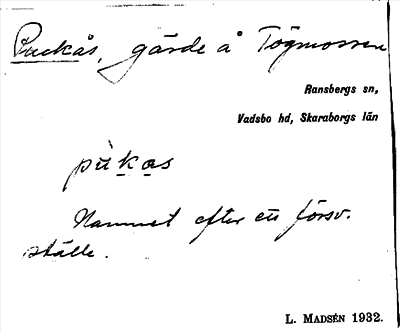 Puckås, gärde å Tögmossen
Ransbergs sn,
Vadsbo hd, Skaraborgs län
pùkas
Namnet efter ett försv.
ställe.
L. MADSÉN 1932.